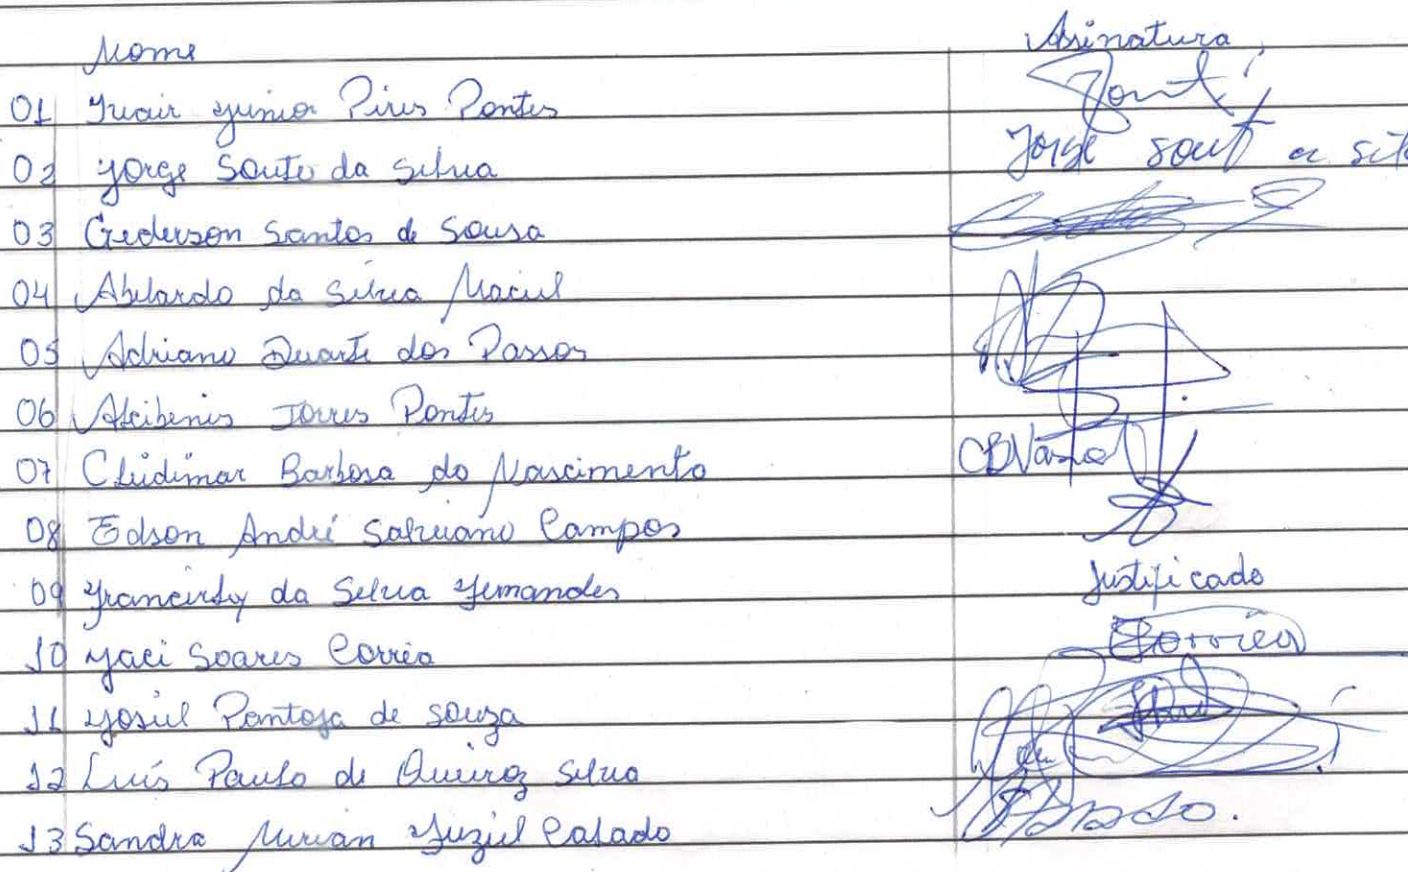 Nome Assinatura
01 Juair Junior Pires Pontes
02 Jorge Souto da Silva Jorge Sout
03 Gederson Santos de Sousa
04 Abelardo da Silva Maciel
05 Adriano Duarte dos Passos
06 Torres Pontes
07 Cludimar Barbosa do Nascimento
08 Edson André Salviano Campos
09 da Silva Fernandes Justificado
10 Jaci Soares Corrêa Corrêa
11 Josiel Pantoja de Souza
12 Luís Paulo de Queiroz Silva
13 Sandra Mirian Calado